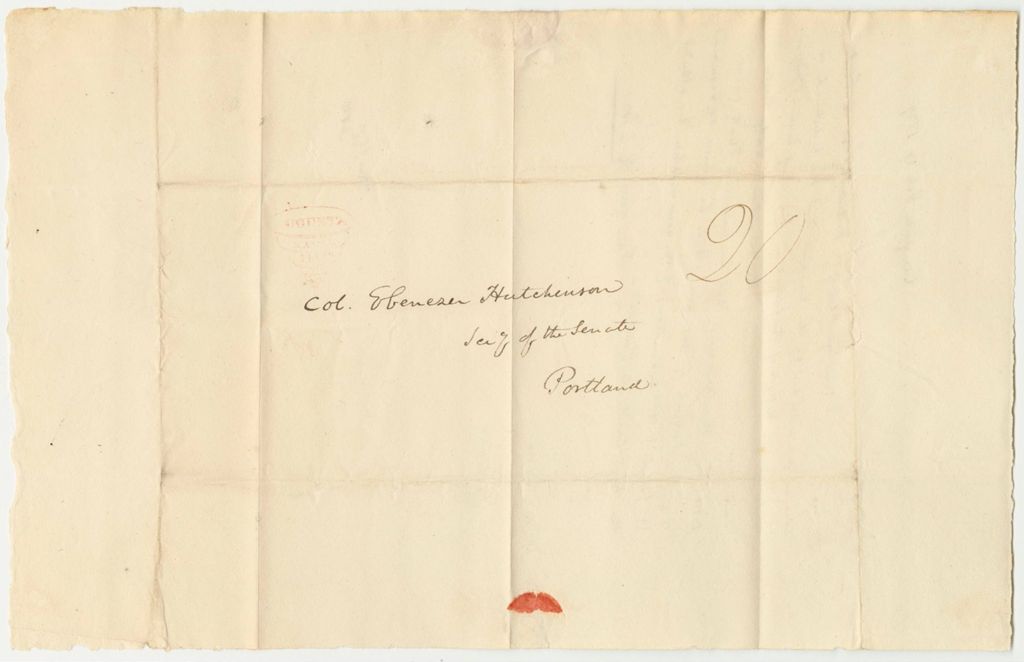 20
Col. Ebenezer Hutchinson
Sec'y of the Senate
Portland